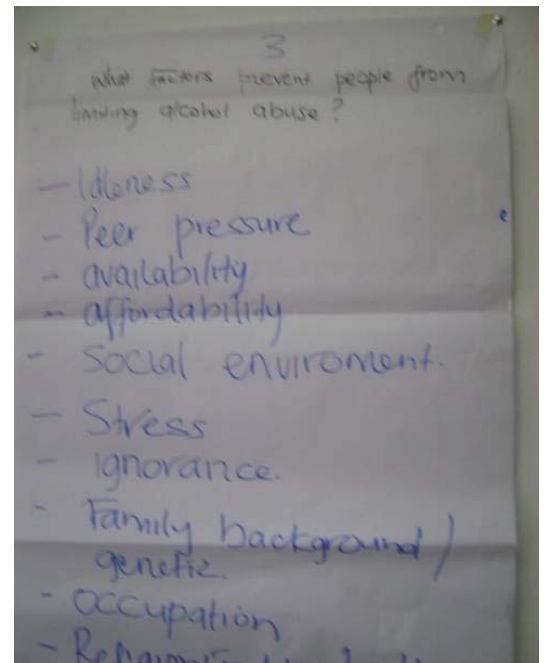 3
what factors prevent people from
limiting alcohol abuse?
- Idleness
- Peer pressure
- availability
- affordability
- Social enviroment.
- Stress
- ignorance.
- Family background /
genetic.
- occupation